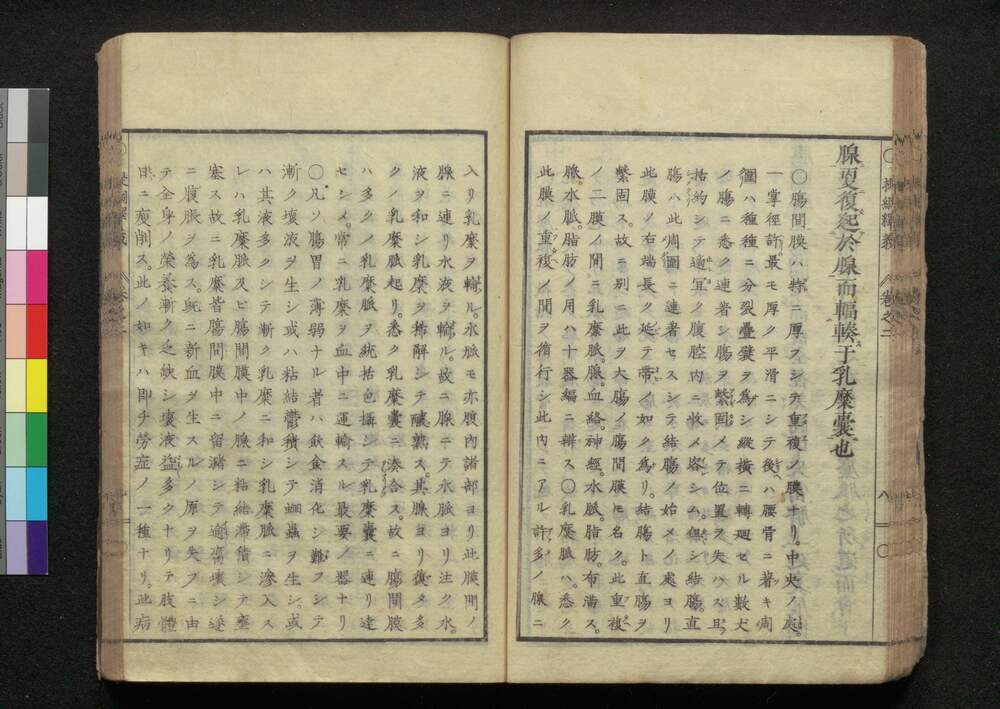 腺。更復起於腺而輻輳于乳糜嚢也
〇腸間膜ハ特ニ厚フシテ重複ノ膜ナリ。中央ノ處。
一掌徑許最モ厚ク平滑ニシテ後ハ腰骨ニ著キ周
圍ハ種種ニ分裂疊襞ヲ為シ縱橫ニ轉廻セル數丈
ノ腸ニ悉ク連著シ腸ヲ繫固メテ位置ヲ失ハス且
括約シテ適宜ク腹腔内ニ收メ容シム。但シ結腸。直
腸ハ此周圍ニ連著セスシテ結腸ノ始メノ處ヨリ
此膜ノ右端長ク延テ帶ノ如ク為リ。結腸ト直腸ヲ
繫固ス。故ニ別ニ此ヲ大腸ノ腸間膜ト名ク。此重複
ノ二膜ノ間ニ乳糜脈。腺。血絡。神經。水脈。脂肪。布滿ス。
腺。水脈。脂肪ノ用ハ十器編ニ辨ス〇乳糜脈ハ。悉ク
此膜ノ重複ノ間ヲ循行シ此内ニアル許多ノ腺ニ
入リ乳糜ヲ輸ル。水脈モ亦腹內諸部ヨリ此膜間ノ
腺ニ連リ水液ヲ輸ル。故ニ腺ニテ水脈ヨリ注ク水
液ヲ和シ乳糜ヲ稀解シテ釀熟ス。其腺ヨリ復タ多
クノ乳糜脈起リ。悉ク乳糜嚢ニ湊合ス。故ニ腸間膜
ハ多クノ乳糜脈ヲ統括包攝シテ乳糜嚢ニ連リ達
セシメ。常ニ乳糜ヲ血中ニ運輸スル最要ノ器ナリ
〇凡ソ腸胃ノ薄弱ナル者ハ飲食消化シ難フシテ
漸ク壞液ヲ生シ或ハ粘結鬱積シテ蛔蟲ヲ生シ。或
ハ其液多クシテ漸ク乳糜ニ和シ乳糜脈ニ滲入ス
レハ乳糜脈及ヒ腸間膜中ノ腺ニ粘結滯積シテ壅
塞ス故ニ乳糜皆腸間膜中ニ留瀦シテ遂
ニ腹脹ヲ為ス。既ニ新血ヲ生スルノ原ヲ失フニ由
テ全身ノ榮養漸ク乏缺シ壞液益多クナリテ肢體
日ニ瘦削ス。此ノ如キハ即チ勞症ノ一種ナリ。此病